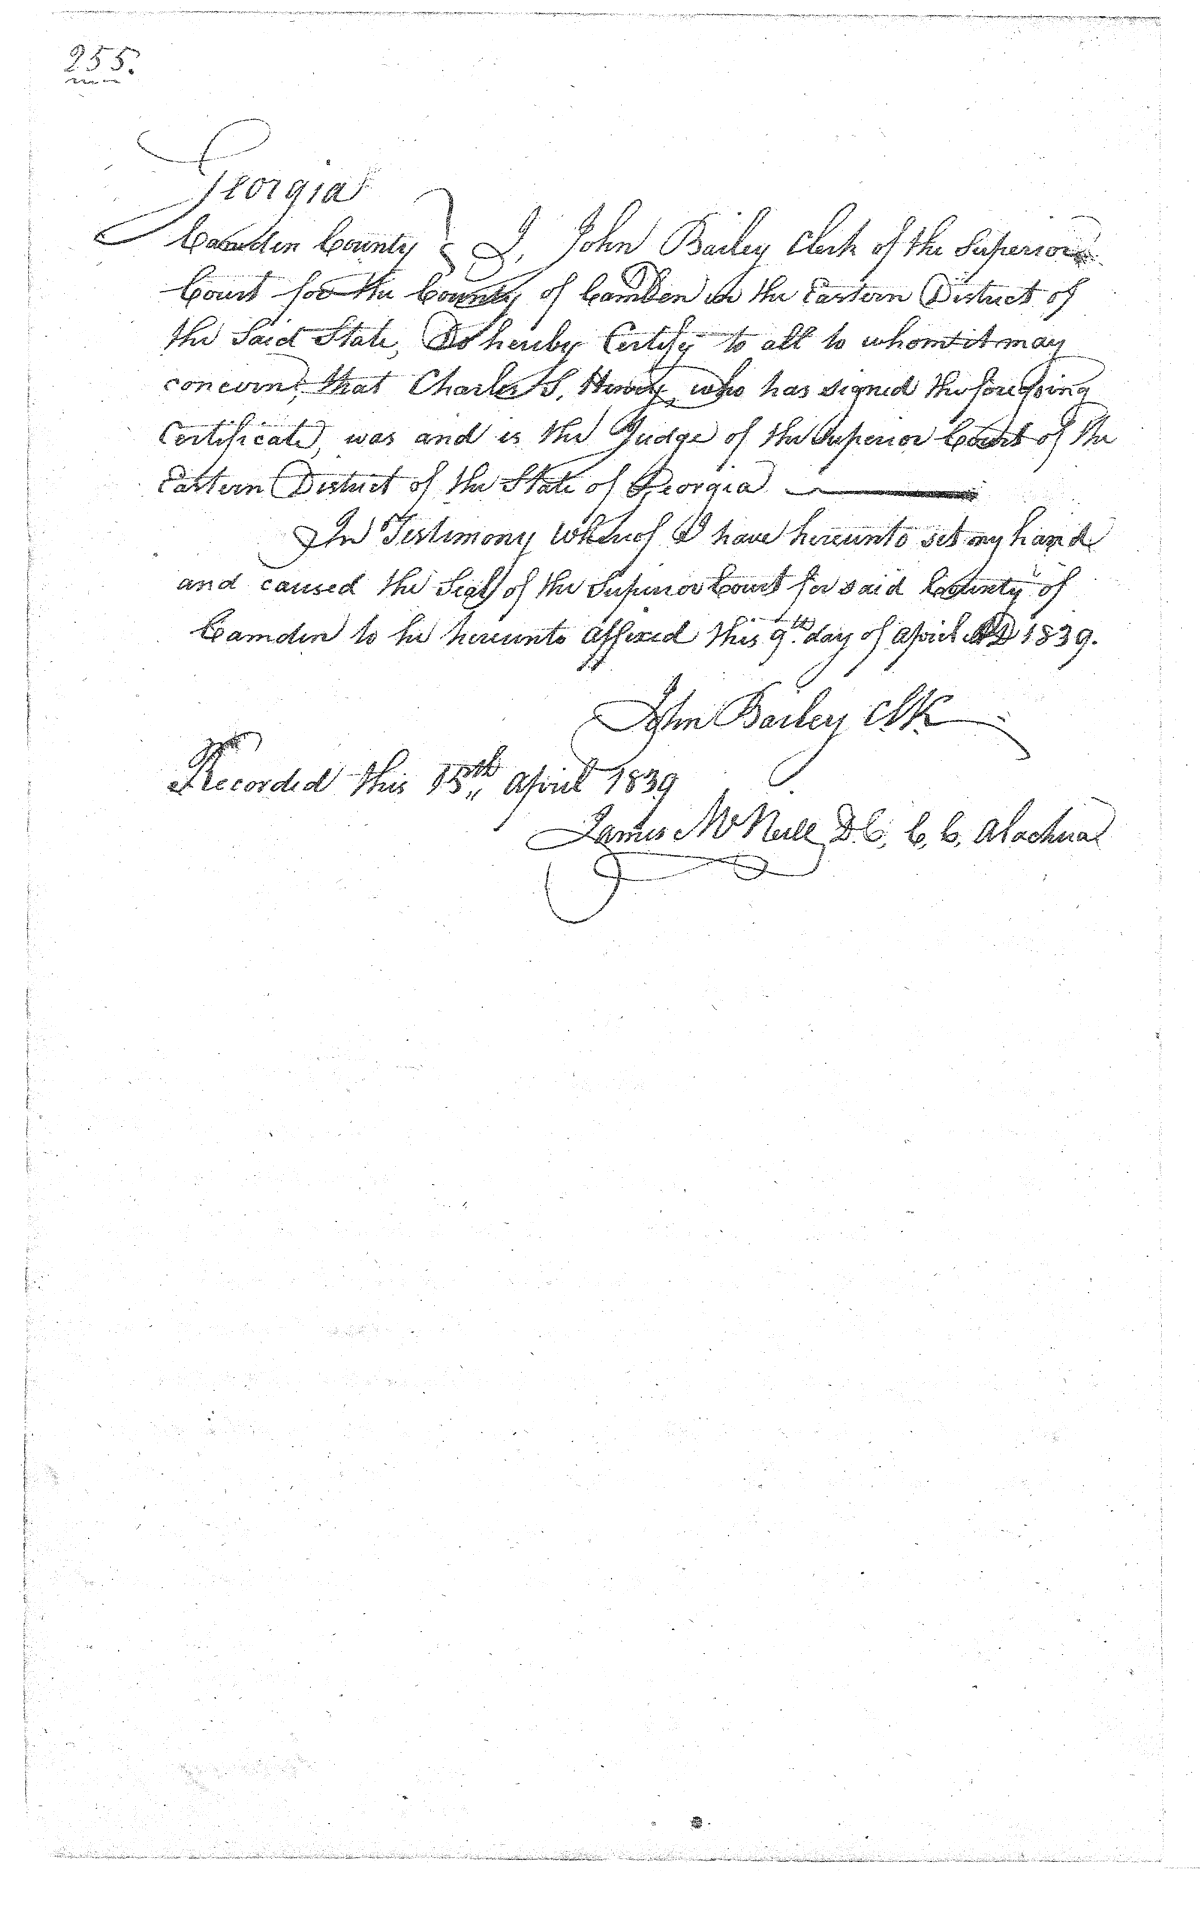 255.
Georgia
Camden County } I, John Bailey Clerk of the Superior
Court for the County of Camden in the Eastern District of
the Said State, Do hereby Certify to all to whom it may
concern, that Charles S. Henry, who has signed the foregoing
Certificate, was and is the Judge of the Superior Court of the
Eastern District of the State of Georgia
In Testimony Whereof I have hereunto set my hand
and caused the Seal of the Superior Court for said County of
Camden to be hereunto affixed this 9th day of April AD 1839.
John Bailey Clk
Recorded this 15th April 1839
James McNeill D.C, C, C, Alachua